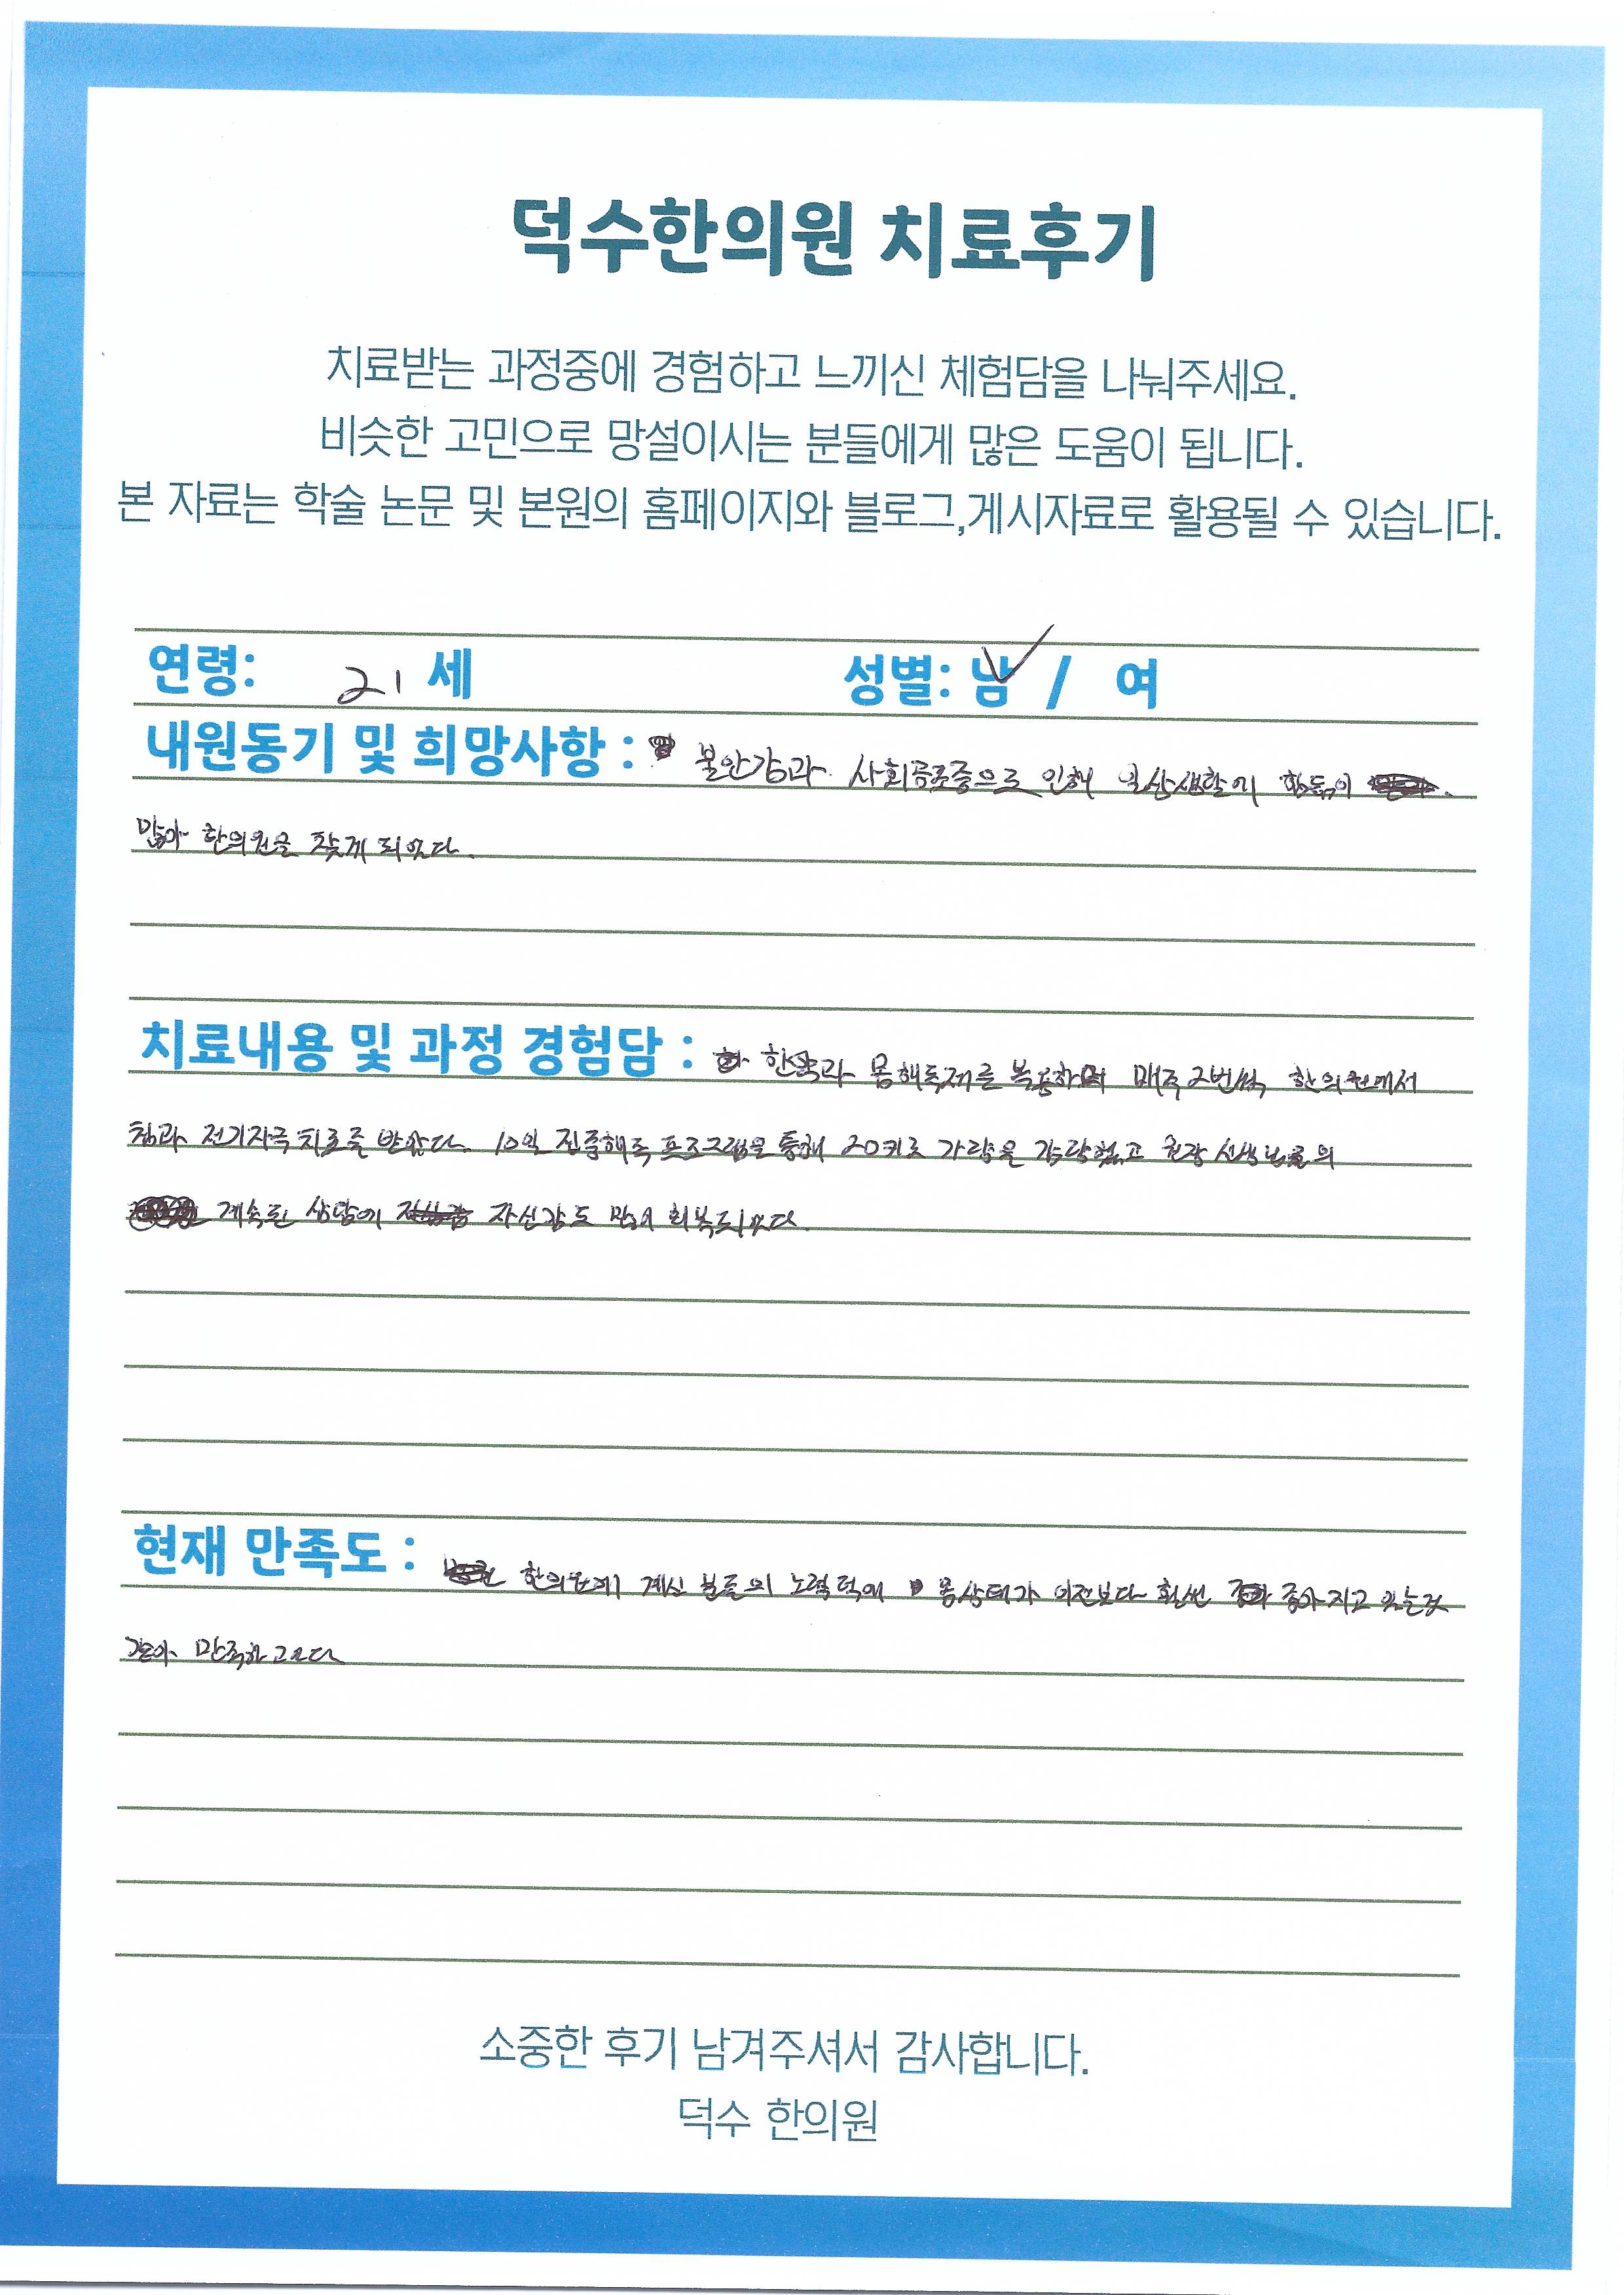 덕수한의원 치료후기
치료받는 과정중에 경험하고 느끼신 체험담을 나눠주세요.
비슷한 고민으로 망설이시는 분들에게 많은 도움이 됩니다.
본 자료는 학술 논문 및 본원의 홈페이지와 블로그,게시자료로 활용될 수 있습니다.
연령: 21 세 성별: 남 / 여
내원동기 및 희망사항 : 불안감과 사회공포증으로 인해 일상생활에 힘듦이
많아 한의원을 찾게 되었다.
치료내용 및 과정 경험담 : 한약과 몸해독제를 복용하며 매주 2번씩 한의원에서
침과 전기자극 치료를 받았다. 10일 집중해독 프로그램을 통해 20키로 가량을 감량했고 원장 선생님의
계속된 상담에 자신감도 많이 회복되었다.
현재 만족도 : 한의원에 계신 분들의 노력 덕에 몸상태가 이전보다 훨씬 좋아지고 있는것
같아 만족하고있다
소중한 후기 남겨주셔서 감사합니다.
덕수 한의원